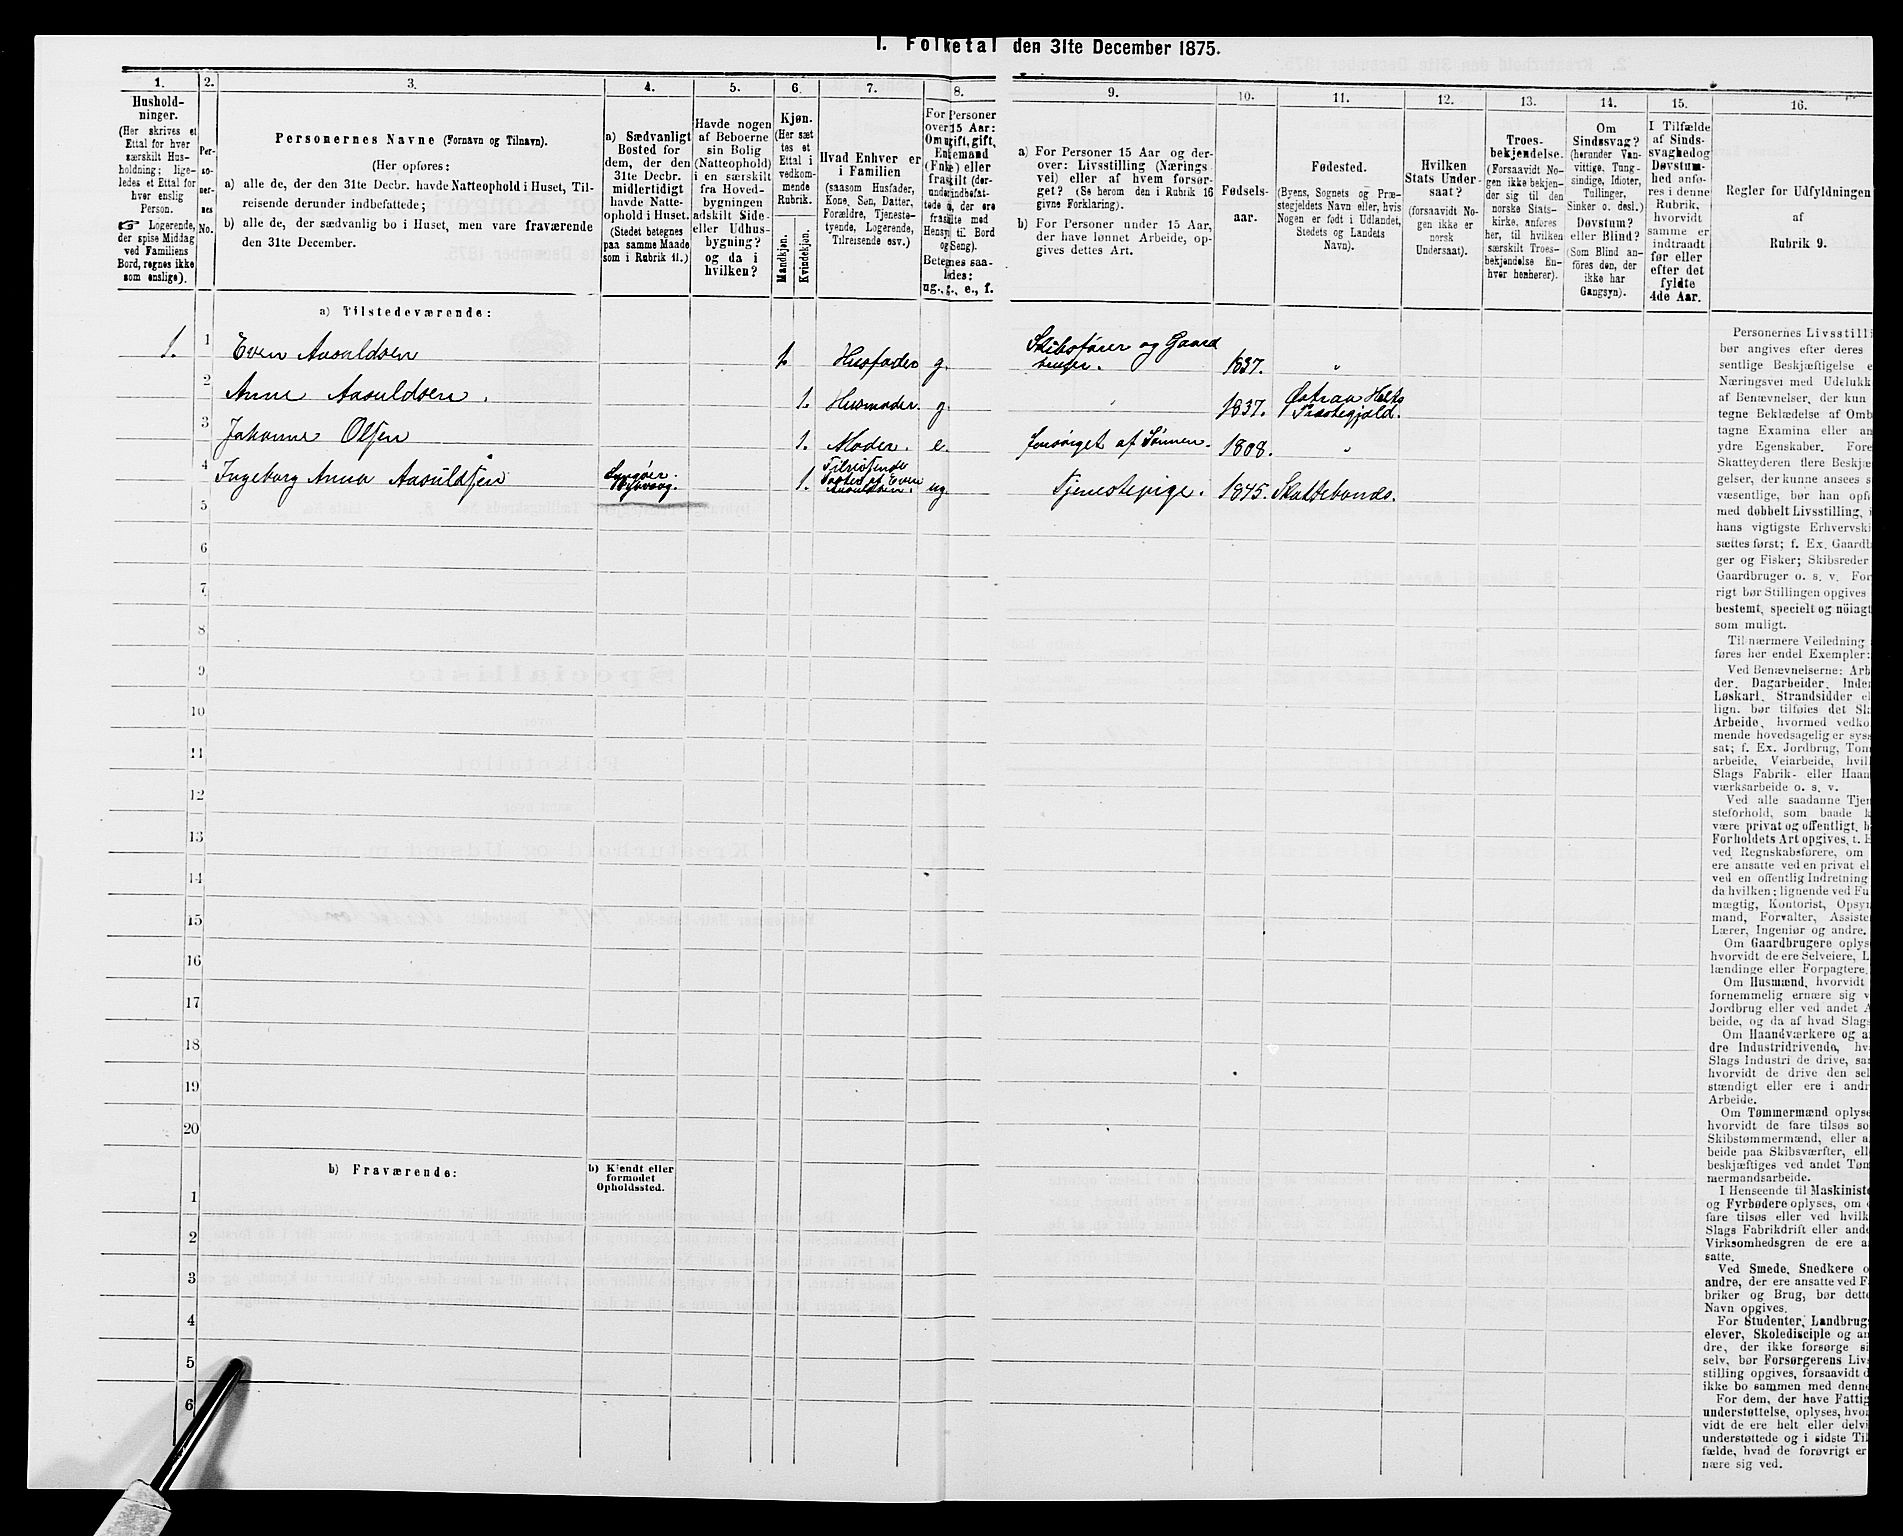 I. Folketal den 31te December 1875.
1.
2.
3.
4.
5.
6.
7.
8.
9.
10.
11.
12.
13.
14.
15.
16.
Hushold-
ninger.
(Her skrives et
Ettal for hver
særskilt Hus-
holdning; lige-
ledes et Ettal for
hver enslig
Person.
☞ Logerende,
der spise Middag
ved Familiens
Bord, regnes ikke
som enslige).
Per-
so-
ner-
nes
No.
Personernes Navne (Fornavn og Tilnavn).
(Her opføres:
a) alle de, der den 31te Decbr. havde Natteophold i Huset, Til-
reisende derunder indbefattede;
b) alle de, der sædvanlig bo i Huset, men vare fraværende
den 31te December.
a) Sædvanligt
Bosted for
dem, der den
31te Decbr.
midlertidigt
havde Natte-
ophold i Huset.
(Stedet betegnes
paa samme Maade
som i Rubrik 11.)
Havde nogen
af Beboerne
sin Bolig
(Natteophold)
i en særskilt
fra Hoved-
bygningen
adskilt Side-
eller Udhus-
bygning?
og da i
hvilken?
Kjøn.
(Her sæt
tes et
Ettal i
vedkom-
mende
Rubrik.
Mandkjøn.
Kvindekjøn.
Hvad Enhver er
i Familien
(saasom Husfader,
Kone, Søn, Datter,
Forældre, Tjeneste-
tyende, Logerende,
Tilreisende osv.)
For Personer
over 15 Aar:
Om ugift, gift,
Enkemand
(Enke) eller
fraskilt (der-
under indbefat-
tede de, der ere
fraskilte med
Hensyn til Bord
og Seng).
Betegnes saa-
ledes:
ug., g., e., f.
a) For Personer 15 Aar og der-
over: Livsstilling (Nærings
vei) eller af hvem forsør-
get? (Se herom den i Rubrik 16
givne Forklaring).
b) For Personer under 15 Aar,
der have lønnet Arbeide, op-
gives dettes Art.
Fødsels-
aar.
Fødested.
(Byens, Sognets og Præ-
stegjeldets Navn eller, hvis
Nogen er født i Udlandet,
Stedets og Landets
Navn).
Hvilken
Stats Under-
saat?
(forsaavidt No-
gen ikke er
norsk
Undersaat).
Troes-
bekjendelse.
(Forsaavidt No-
gen ikke bekjen-
der sig til den
norske Stats-
kirke, anføres
her, til hvilken
særskilt Troes-
bekjendelse En-
hver henhører).
Om
Sindssvag?
(herunder Van-
vittige, Tung-
sindige, Idioter,
Tullinger,
Sinker o. desl.)
Døvstum?
eller Blind?
(Som Blind an-
føres den, der
ikke har
Gangsyn).
I Tilfælde
af Sinds-
svaghed og
Døvstum-
hed anfø-
res i denne
Rubrik,
hvorvidt
samme er
indtraadt
før eller
efter det
fyldte
4de Aar.
Regler for Udfyldningen
af
Rubrik 9.
a) Tilstedeværende:
1. 1 Even Aasuldsen 1. Husfader g. Skibsfører og Gaard
bruger. 1837. "
2 Anne Aasuldsen. 1. Husmoder. g. " 1837. Østraa Holts
Præstegjæld.
3 Johanne Olsen 1. Moder. e. forsørget af Sønnen. 1808. "
4 Ingeborg Anna Aasuldsen Lyngøer
1. Tilreisende
Søster af Even
Aasuldsen. ug. Tjenestepige. 1845. Skattebonds.
5
6
7
8
9
10
11
12
13
14
15
16
17
18
19
20
b) Fraværende:
b) Kjendt eller
formodet
Opholdssted.
1
2
3
4
5
6
Personernes Livsstilli
bør angives efter deres
sentlige Beskjæftigelse e
Næringsvei med Udelukk
af Benævnelser, der kun
tegne Beklædelse af Omb
tagne Examina eller an
ydre Egenskaber. Fore
Skatteyderen flere Beskjæ
gelser, der kunne ansees s
væsentlige, bør han opf
med dobbelt Livsstilling, i
hans vigtigste Erhvervski
sættes først; f. Ex. Gaardb
ger og Fisker; Skibsreder
Gaardbruger o. s. v. For
rigt bør Stillingen opgives
bestemt, specielt og nöiagt
som muligt.
Til nærmere Veiledning
føres her endel Exempler:
Ved Benævnelserne: Arb
der, Dagarbeider, Inder
Løskarl, Strandsidder el
lign. bør tilføies det Sl
Arbeide, hvormed vedko
mende hovedsagelig er syss
sat; f. Ex. Jordbrug, Tom
arbeide, Veiarbeide, hvil
Slags Fabrik- eller Haan
værksarbeide o. s. v.
Ved alle saadanne Tjen
steforhold, som baade k
være privat og offentligt, b
Forholdets Art opgives, t. E
ved Regnskabsførere, om
ere ansatte ved en privat el
ved en offentlig Indretning
da hvilken; lignende ved Fu
mægtig, Kontorist, Opsyn
mand, Forvalter, Assiste
Lærer, Ingeniør og andre.
Om Gaardbrugere oplyse
hvorvidt de ere Selveiere, L
lændinge eller Forpagtere.
Om Husmænd, hvorvidt
fornemmelig ernære sig v
Jordbrug eller ved andet A
beide, og da af hvad Slags
Om Haandværkere og a
dre Industridrivende, hv
Slags Industri de drive, sa
hvorvidt de drive den sel
stændigt eller ere i andr
Arbeide.
Om Tømmermænd oplyse
hvorvidt de fare tilsøs so
Skibstømmermænd, eller a
beide paa Skibsværfter, ell
beskjæftiges ved andet Tøm
mermandsarbeide.
I Henseende til Maskiniste
og Fyrbødere oplyses, om
fare tilsøs eller ved hvilk
Slags Fabrikdrift eller ande
Virksomhedsgren de ere a
satte.
Ved Smede, Snedkere o
andre, der ere ansatte ved F
briker og Brug, bør dette
Navn opgives.
For Studenter, Landbrug
elever, Skoledisciple og an
dre, der ikke forsørge si
selv, bør Forsørgerens Liv
stilling opgives, forsaavidt d
ikke bo sammen med denne
For dem, der have Fattig
understøttelse, oplyses, hvo
vidt de ere helt eller delvi
understøttede og i sidste Til
fælde, hvad de forøvrigt er
nære sig ved.